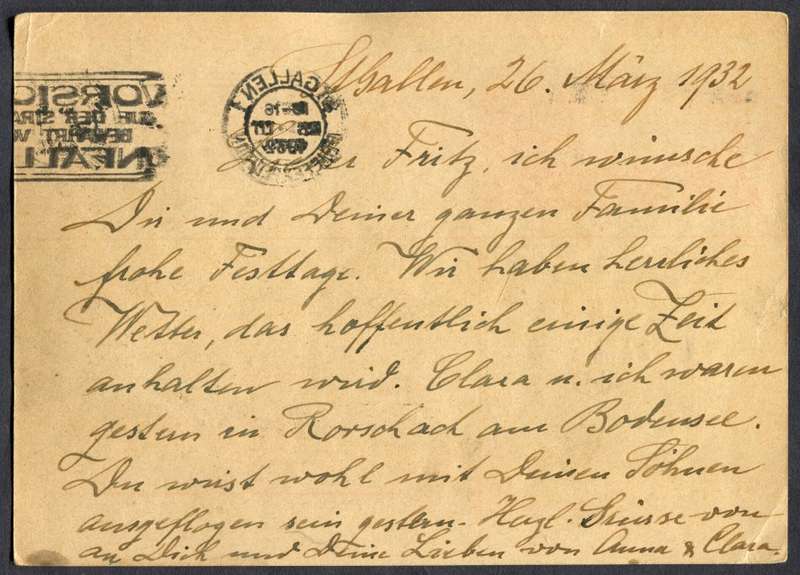 St. Gallen, 26. März 1932
Lieber Fritz, ich wünsche
Dir und Deiner ganzen Familie
frohe Festtage. Wir haben herrliches
Wetter, das hoffentlich einige Zeit
anhalten wird. Clara u. ich waren
gestern in Rorschach am Bodensee.
Du wirst wohl mit Deinen Söhnen
ausgeflogen sein gestern. Herzl. Grüsse von
an Dich und Deine Lieben von Anna & Clara.
VORSICHT
AUF DER STRA
BEWAHRT VO
UNFALL
ST. GALLEN 1